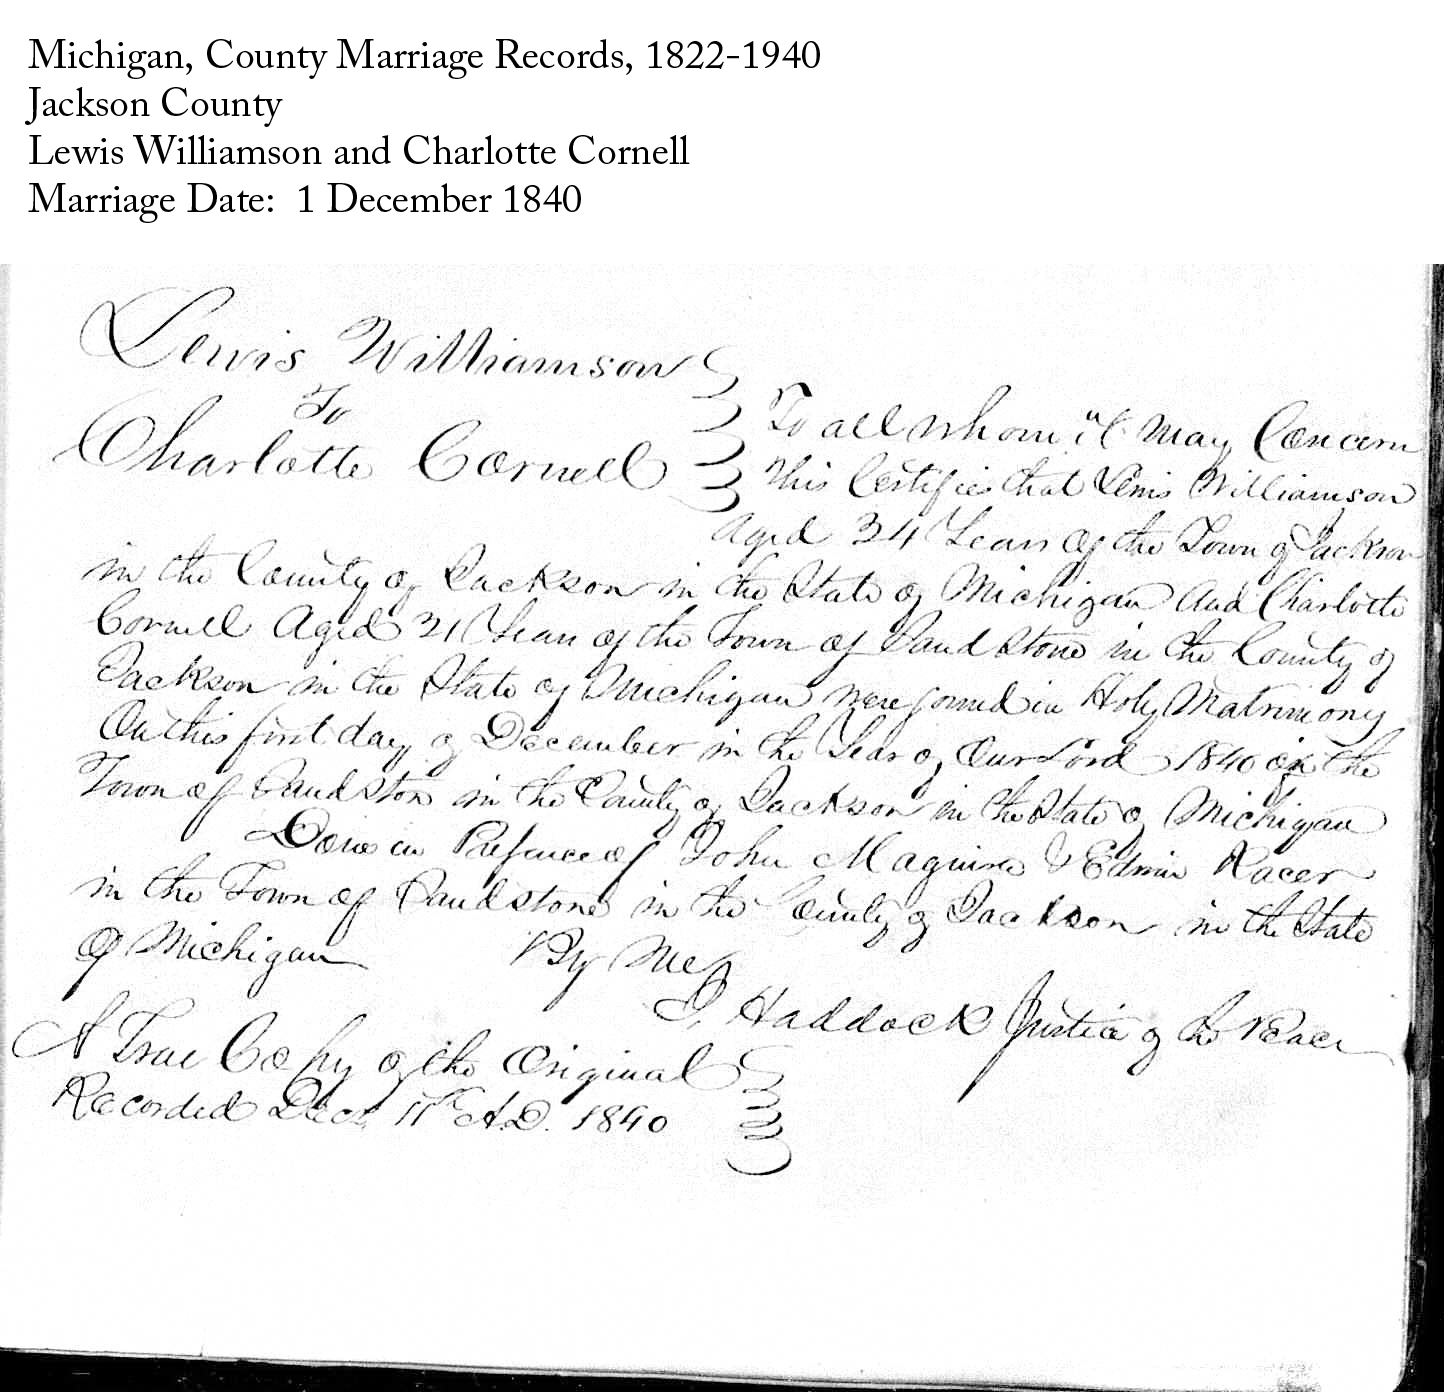 Michigan, County Marriage Records, 1822-1940
Jackson County
Lewis Williamson and Charlotte Cornell
Marriage Date: 1 December 1840
Lewis Williamson
To
Charlotte Cornell
To all whom it May Concern
This Certifies that Lewis Williamson
Aged 34 Years Of the Town of Jackson
in the County of Jackson in the State of Michigan And Charlotte
Cornell Aged 21 Years of the Town of Sand Stone in the County of
Jackson in the State of Michigan were joined in Holy Matrimony
On this first day of December in the Year of Our Lord 1840 in the
Town of Sand Ston in the County of Jackson in the State of Michigan
Done in Presence of John Maguire & Edwin Racer
in the Town of Sandstone in the County of Jackson in the State
Of Michigan By Me
Haddock Justice of the Peace
A True Copy of the Original
Recorded Dec. 11th A.D. 1840